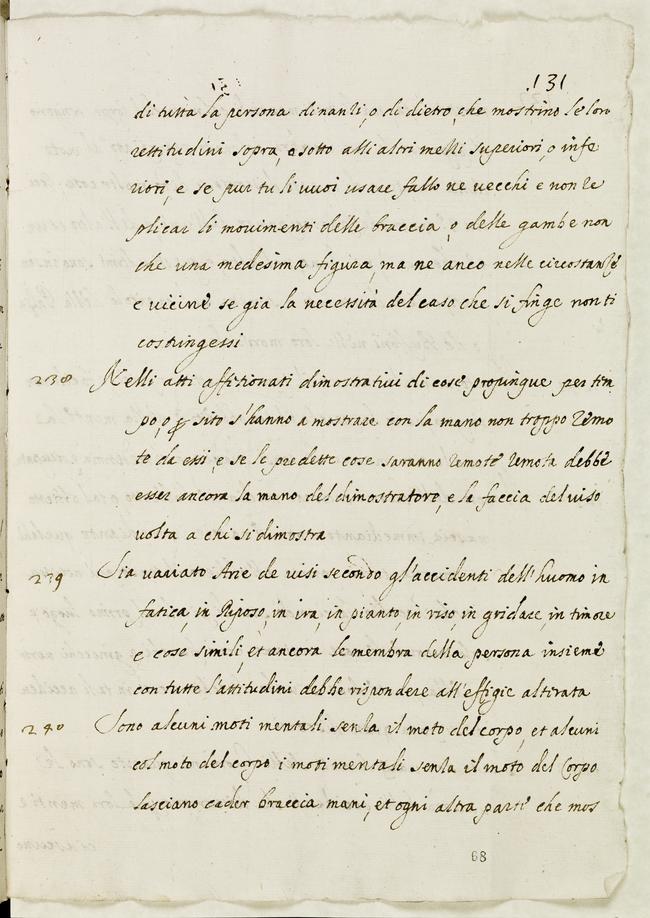 131
di tutta la persona dinanzi, o di dietro, che mostrino le loro
rettitudini sopra, o sotto alli altri melli superiori, o infe
riori, e se pur tu li vuoi usare fallo ne vecchi e non re
plicar li movimenti delle braccia, o delle gambe non
che una medesima figura, ma ne anco nelle circostanze
e vicine se gia la necessità del caso che si finge non ti
costringessi
238 Nelli atti affizionati dimostrativi di cose propinque per tem
po, o p sito s'hanno a mostrare con la mano non troppo remo
te da essi, e se le predette cose saranno remote remota debbe
esser ancora la mano del dimostratore, e la faccia del viso
volta a chi si dimostra
239 Sia variato Arie de visi secondo gl'accidenti dell'huomo in
fatica, in Riposo, in ira, in pianto, in riso, in gridare, in timore
e cose simili, et ancora le membra della persona insieme
con tutte l'attitudini debbe rispondere all'effigie altirata
240 Sono alcuni moti mentali senza il moto del corpo, et alcuni
col moto del corpo i moti mentali senza il moto del Corpo
lasciano cader braccia mani, et ogni altra parte che mos
68